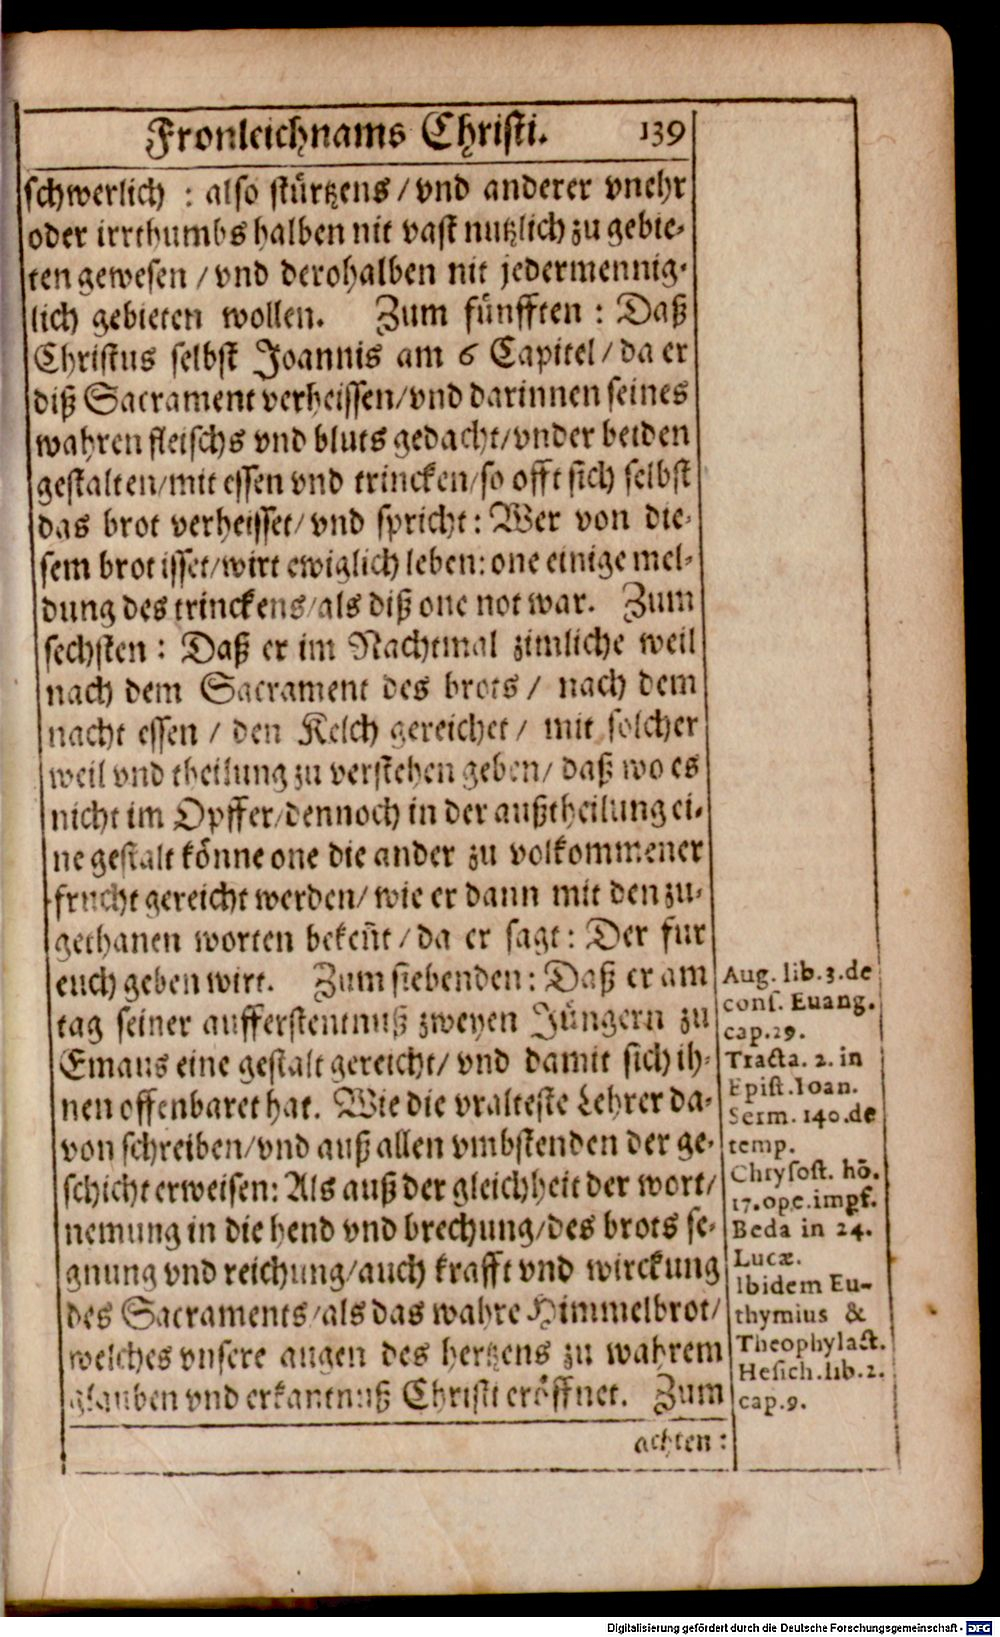 Fronleichnams Christi. 139
schwerlich : also stürtzens / vnd anderer vnehr
oder irrthumbs halben nit vast nutzlich zu gebie-
ten gewesen / vnd derohalben nit jedermennig-
lich gebieten wollen. Zum fünfften : Daß
Christus selbst Joannis am 6 Capitel / da er
diß Sacrament verheissen / vnd darinnen seines
wahren fleischs vnd bluts gedacht / vnder beiden
gestalten / mit essen vnd trincken / so offt sich selbst
das brot verheisset / vnd spricht : Wer von die-
sem brot isset / wirt ewiglich leben : one einige mel-
dung des trinckens / als diß one not war. Zum
sechsten : Daß er im Nachtmal zimliche weil
nach dem Sacrament des brots / nach dem
nacht essen / den Kelch gereichet / mit solcher
weil vnd theilung zu verstehen geben / daß wo es
nicht im Opffer / dennoch in der außtheilung ei-
ne gestalt könne one die ander zu volkommener
frucht gereicht werden / wie er dann mit den zu-
gethanen worten bekeñt / da er sagt : Der fur
euch geben wirt. Zum siebenden : Daß er am
tag seiner aufferstentnuß zweyen Jüngern zu
Emaus eine gestalt gereicht / vnd damit sich ih-
nen offenbaret hat. Wie die vralteste Lehrer da-
von schreiben / vnd auß allen vmbstenden der ge-
schicht erweisen : Als auß der gleichheit der wort /
nemung in die hend vnd brechung / des brots se-
gnung vnd reichung / auch krafft vnd wirckung
des Sacraments / als das wahre Himmelbrot /
welches vnsere augen des hertzens zu wahrem
glauben vnd erkantnuß Christi eröffnet. Zum
achten :
Aug. lib. 3. de
cons. Euang.
cap. 29.
Tracta. 2. in
Epist. Ioan.
Serm. 140. de
temp.
Chrysost. hō.
17. ope. impf.
Beda in 24.
Lucæ.
Ibidem Eu-
thymius &
Theophylact.
Hesich. lib. 2.
cap. 9.
Digitalisierung gefördert durch die Deutsche Forschungsgemeinschaft - DFG